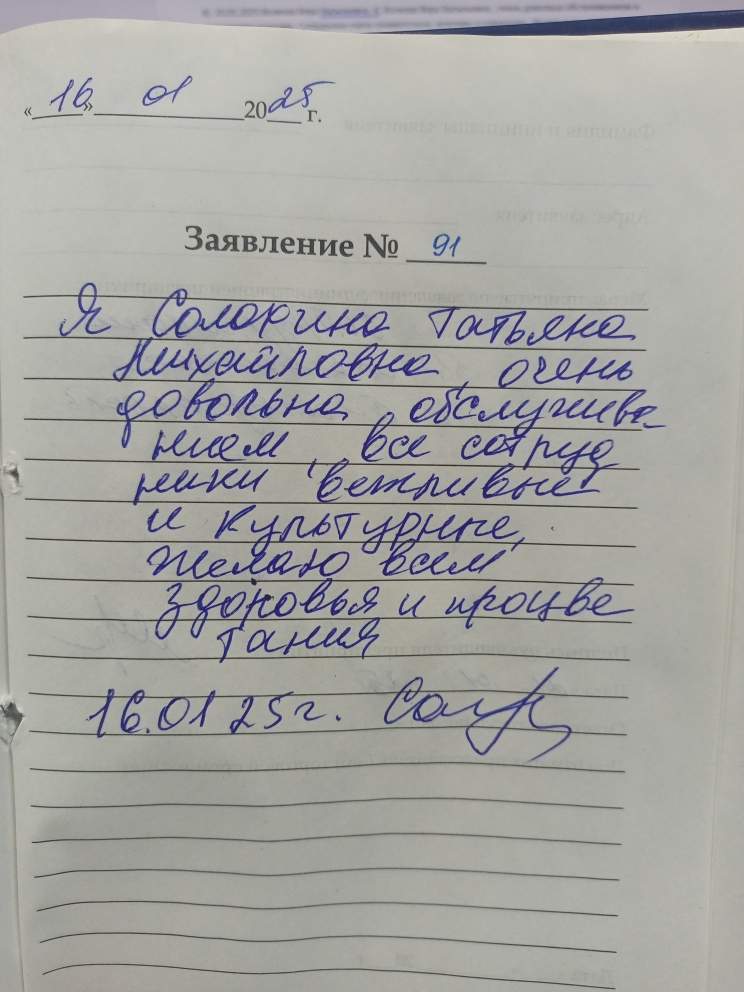 «16» 01 2025 г.
Заявление № 91
Я Солокина Татьяна
Михайловна, очень
довольна обслужива-
нием, все сотруд
ники вежливые
и культурные,
желаю всем
здоровья и процве
тания
16.01 25г.